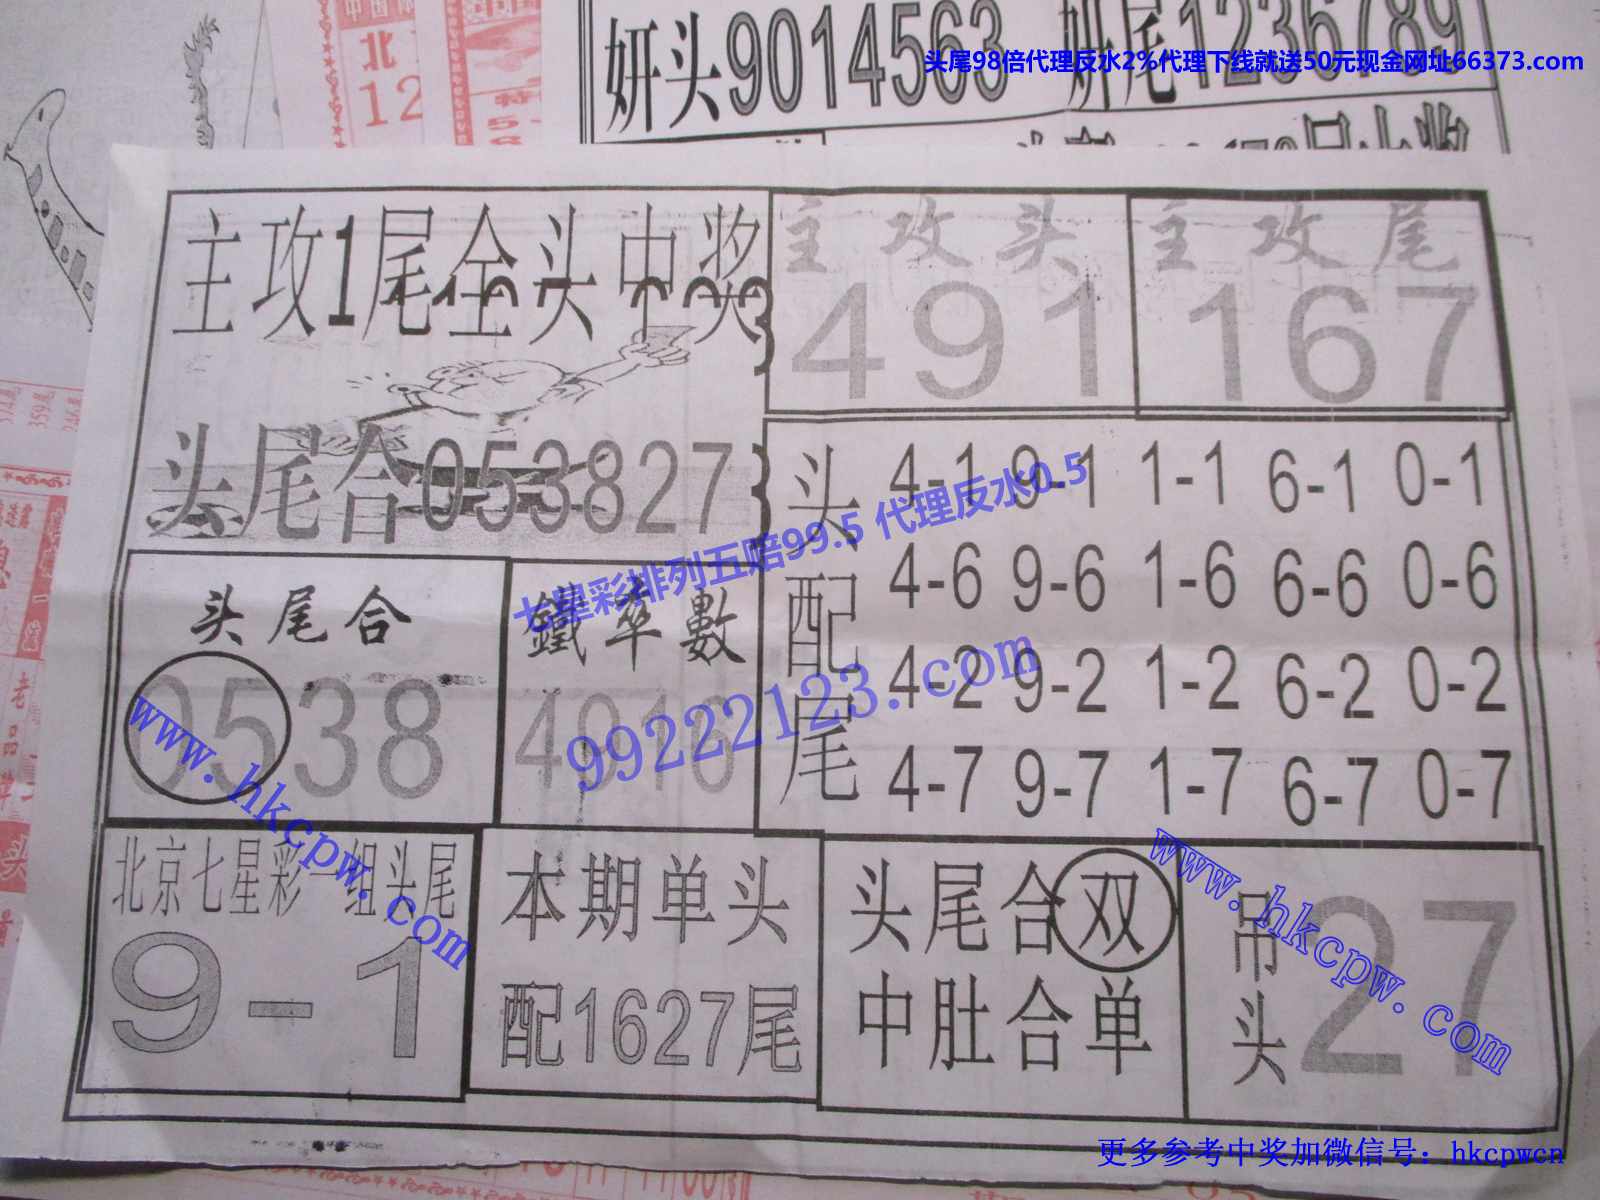 妍头9014563
妍尾1236789
头尾98倍代理反水2%代理下线就送50元现金网址66373.com
主攻1尾全头中奖
主攻头
491
主攻尾
167
头尾合053827
头配尾
4-1 9-1 1-1 6-1 0-1
4-6 9-6 1-6 6-6 0-6
4-2 9-2 1-2 6-2 0-2
4-7 9-7 1-7 6-7 0-7
七星彩排列五赔99.5 代理反水0.5
99222123.com
头尾合
0538
鐵率數
4916
www.hkcpw.com
北京七星彩一组头尾
9-1
本期单头
配1627尾
头尾合双
中肚合单
吊头
27
www.hkcpw.com
更多参考中奖加微信号：hkcpwcn